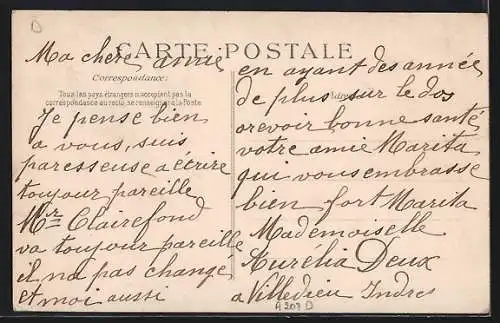 CARTE POSTALE
Ma chère amie
Correspondance:
Tous les pays étrangers n'acceptent pas la
correspondance au recto, se renseigner à la Poste
Je pense bien
a vous, suis
paresseuse a écrire
toujour pareille
Mr Clairefond
va toujour pareille
il na pas changé
et moi aussi
en ayant des année
de plus sur le dos
Adresse
arevoir bonne santé
votre amie Marita
qui vous embrasse
bien fort Marita
Mademoiselle
Aurélia Deux
a Villedieu Indres
A 209 D